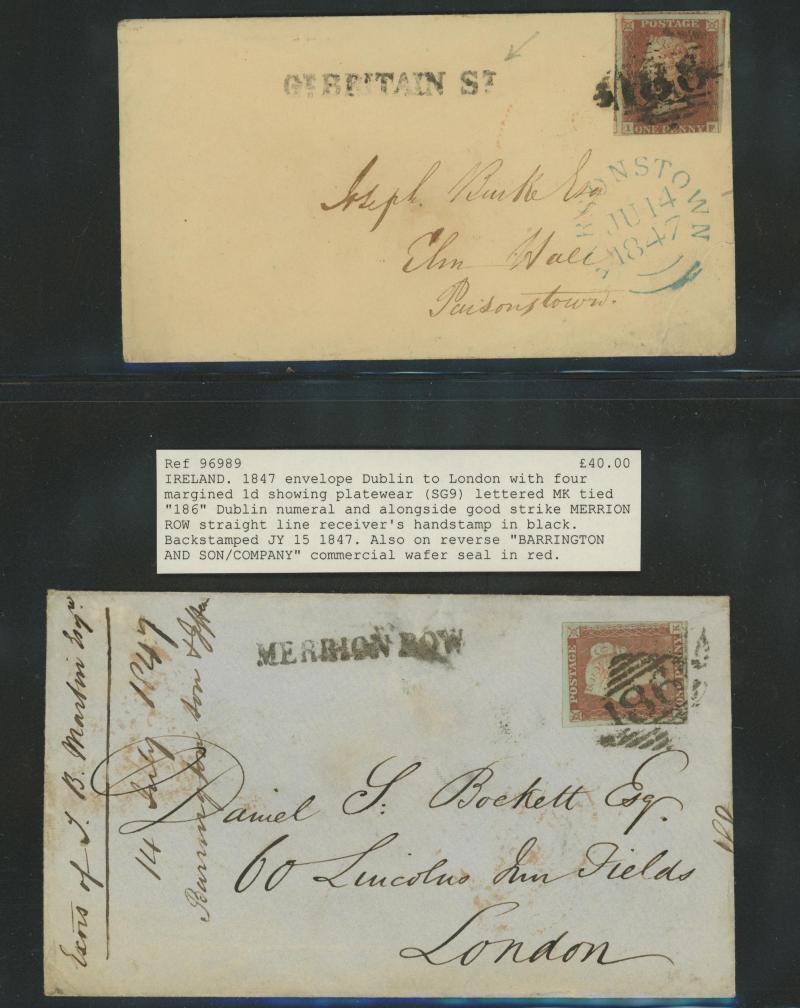 Gt BRITAIN St
POSTAGE
188
ONE PENNY
Joseph Burke Esq
Elm Hall
Parsonstown.
RSONSTOWN
JU 14
1847
Ref 96989 £40.00
IRELAND. 1847 envelope Dublin to London with four
margined 1d showing platewear (SG9) lettered MK tied
"186" Dublin numeral and alongside good strike MERRION
ROW straight line receiver's handstamp in black.
Backstamped JY 15 1847. Also on reverse "BARRINGTON
AND SON/COMPANY" commercial wafer seal in red.
Exors of J. B. Martin Esqre
14 July 1847
Barrington Son &
MERRION ROW
POSTAGE
186
ONE PENNY
Daniel S. Bockett Esq.
60 Lincolns Inn Fields
London